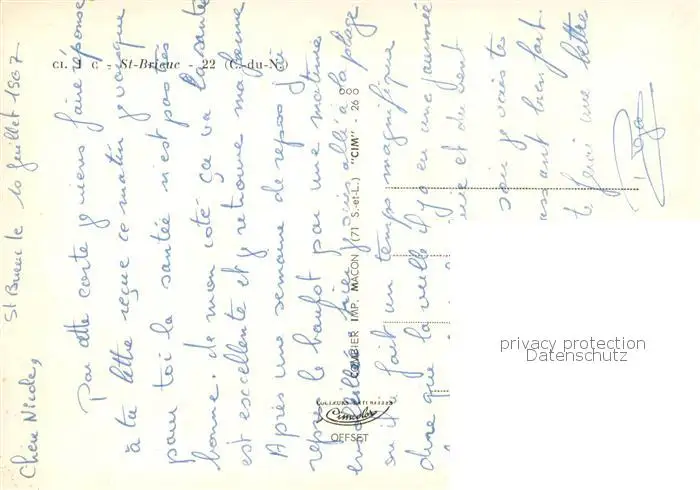 St Brieuc le 10 juillet 1967
Chère Nicole,
Par cette carte je viens faire réponse
à ta lettre reçue ce matin je vois que
pour toi la santé n'est pas très
bonne. de mon coté ça va la santé
est excellente et je retrouve ma forme
Après une semaine de repos j'ai
repris le boulot par une matinée
ensoleillée hier je suis allé à la plage
où il a fait un temps magnifique
dire que la veille il y a eu une journée
et du vent
soir je vais te
laissant bien fort.
te ferai une lettre
CI. 2 C - St-Brieuc - 22 (C.-du-N.)
COMBIER IMP. MACON (71 S.-et-L.) "CIM" - 26
COULEURS NATURELLES
Cimcolor
OFFSET
privacy protection
Datenschutz